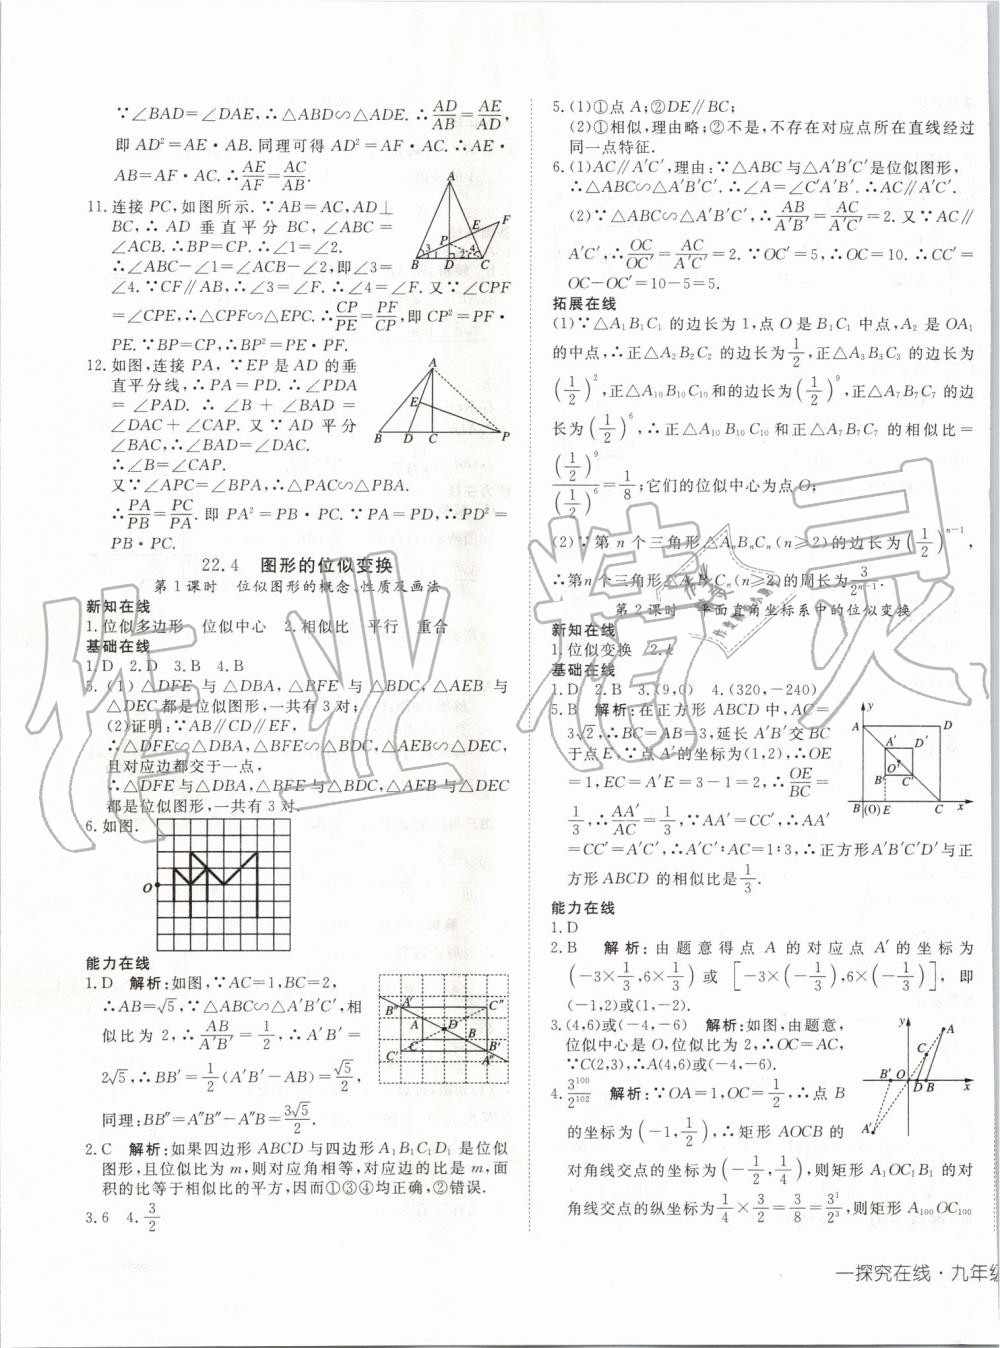 ∵∠BAD=∠DAE,∴△ABD∽△ADE.∴AD/AB=AE/AD,
即 AD²=AE·AB. 同理可得 AD²=AF·AC.∴AE·
AB=AF·AC.∴AE/AF=AC/AB.
11.连接 PC,如图所示.∵AB=AC,AD⊥
BC,∴AD 垂直平分 BC,∠ABC=
∠ACB.∴BP=CP.∴∠1=∠2.
∴∠ABC-∠1=∠ACB-∠2,即∠3=
∠4.∵CF∥AB,∴∠3=∠F.∴∠4=∠F. 又∵∠CPF
=∠CPE,∴△CPF∽△EPC.∴CP/PE=PF/CP,即 CP²=PF·
PE.∵BP=CP,∴BP²=PE·PF.
12.如图,连接 PA,∵EP 是 AD 的垂
直平分线,∴PA=PD.∴∠PDA
=∠PAD.∴∠B+∠BAD=
∠DAC+∠CAP. 又∵AD 平分
∠BAC,∴∠BAD=∠DAC.
∴∠B=∠CAP.
又∵∠APC=∠BPA,∴△PAC∽△PBA.
∴PA/PB=PC/PA. 即 PA²=PB·PC.∵PA=PD,∴PD²=
PB·PC.
22.4 图形的位似变换
第1课时 位似图形的概念、性质及画法
新知在线
1.位似多边形 位似中心 2.相似比 平行 重合
基础在线
1.D 2.D 3.B 4.B
5.(1)△DFE 与△DBA,△BFE 与△BDC,△AEB 与
△DEC都是位似图形,一共有3对;
(2)证明:∵AB∥CD∥EF,
∴△DFE∽△DBA,△BFE∽△BDC,△AEB∽△DEC,
且对应边都交于一点,
∴△DFE与△DBA,△BFE与△BDC,△AEB与△DEC
都是位似图形,一共有3对.
6.如图.
O
能力在线
1.D 解析:如图,∵AC=1,BC=2,
∴AB=√5,∵△ABC∽△A′B′C′,相
似比为 2,∴AB/A′B′=1/2,∴A′B′=
2√5,∴BB′=1/2(A′B′-AB)=√5/2,
同理:BB″=A″B″-A″B=3√5/2.
2.C 解析:如果四边形 ABCD 与四边形 A₁B₁C₁D₁ 是位似
图形,且位似比为 m,则对应角相等,对应边的比是 m,面
积的比等于相似比的平方,因而①③④均正确,②错误.
3.6 4.3/2
5.(1)①点 A;②DE∥BC;
(2)①相似,理由略;②不是,不存在对应点所在直线经过
同一点特征.
6.(1)AC∥A′C′,理由:∵△ABC与△A′B′C′是位似图形,
∴△ABC∽△A′B′C′.∴∠A=∠C′A′B′.∴AC∥A′C′.
(2)∵△ABC∽△A′B′C′,∴AB/A′B′=AC/A′C′=2. 又∵AC∥
A′C′,∴OC/OC′=AC/A′C′=2.∵OC′=5,∴OC=10.∴CC′=
OC-OC′=10-5=5.
拓展在线
(1)∵△A₁B₁C₁ 的边长为 1,点 O 是 B₁C₁ 中点,A₂ 是 OA₁
的中点,∴正△A₂B₂C₂ 的边长为1/2,正△A₃B₃C₃ 的边长为
(1/2)²,正△A₁₀B₁₀C₁₀和的边长为(1/2)⁹,正△A₇B₇C₇ 的边
长为(1/2)⁶,∴正△A₁₀B₁₀C₁₀和正△A₇B₇C₇ 的相似比=
(1/2)⁹/(1/2)⁶=1/8;它们的位似中心为点 O;
(2)∵第 n 个三角形△AₙBₙCₙ(n≥2)的边长为(1/2)ⁿ⁻¹,
∴第 n 个三角形△AₙBₙCₙ(n≥2)的周长为3/2ⁿ⁻¹.
第2课时 平面直角坐标系中的位似变换
新知在线
1.位似变换 2.k
基础在线
1.D 2.B 3.(9,0) 4.(320,-240)
5.B 解析:在正方形 ABCD 中,AC=
3√2,∴BC=AB=3,延长 A′B′交 BC
于点 E,∵点 A′的坐标为(1,2),∴OE
=1,EC=A′E=3-1=2,∴OE/BC=
1/3,∴AA′/AC=1/3,∵AA′=CC′,∴AA′
=CC′=A′C′,∴A′C′:AC=1:3,∴正方形A′B′C′D′与正
方形 ABCD 的相似比是1/3.
能力在线
1.D
2.B 解析:由题意得点 A 的对应点 A′的坐标为
(-3×1/3,6×1/3)或[-3×(-1/3),6×(-1/3)],即
(-1,2)或(1,-2).
3.(4,6)或(-4,-6) 解析:如图,由题意,
位似中心是 O,位似比为 2,∴OC=AC,
∵C(2,3),∴A(4,6)或(-4,-6).
4.3¹⁰⁰/2¹⁰² 解析:∵OA=1,OC=1/2,∴点 B
的坐标为(-1,1/2),∴矩形 AOCB 的
对角线交点的坐标为(-1/2,1/4),则矩形 A₁OC₁B₁ 的对
角线交点的纵坐标为1/4×3/2=3/8=3¹/2³,则矩形 A₁₀₀OC₁₀₀
一探究在线·九年级